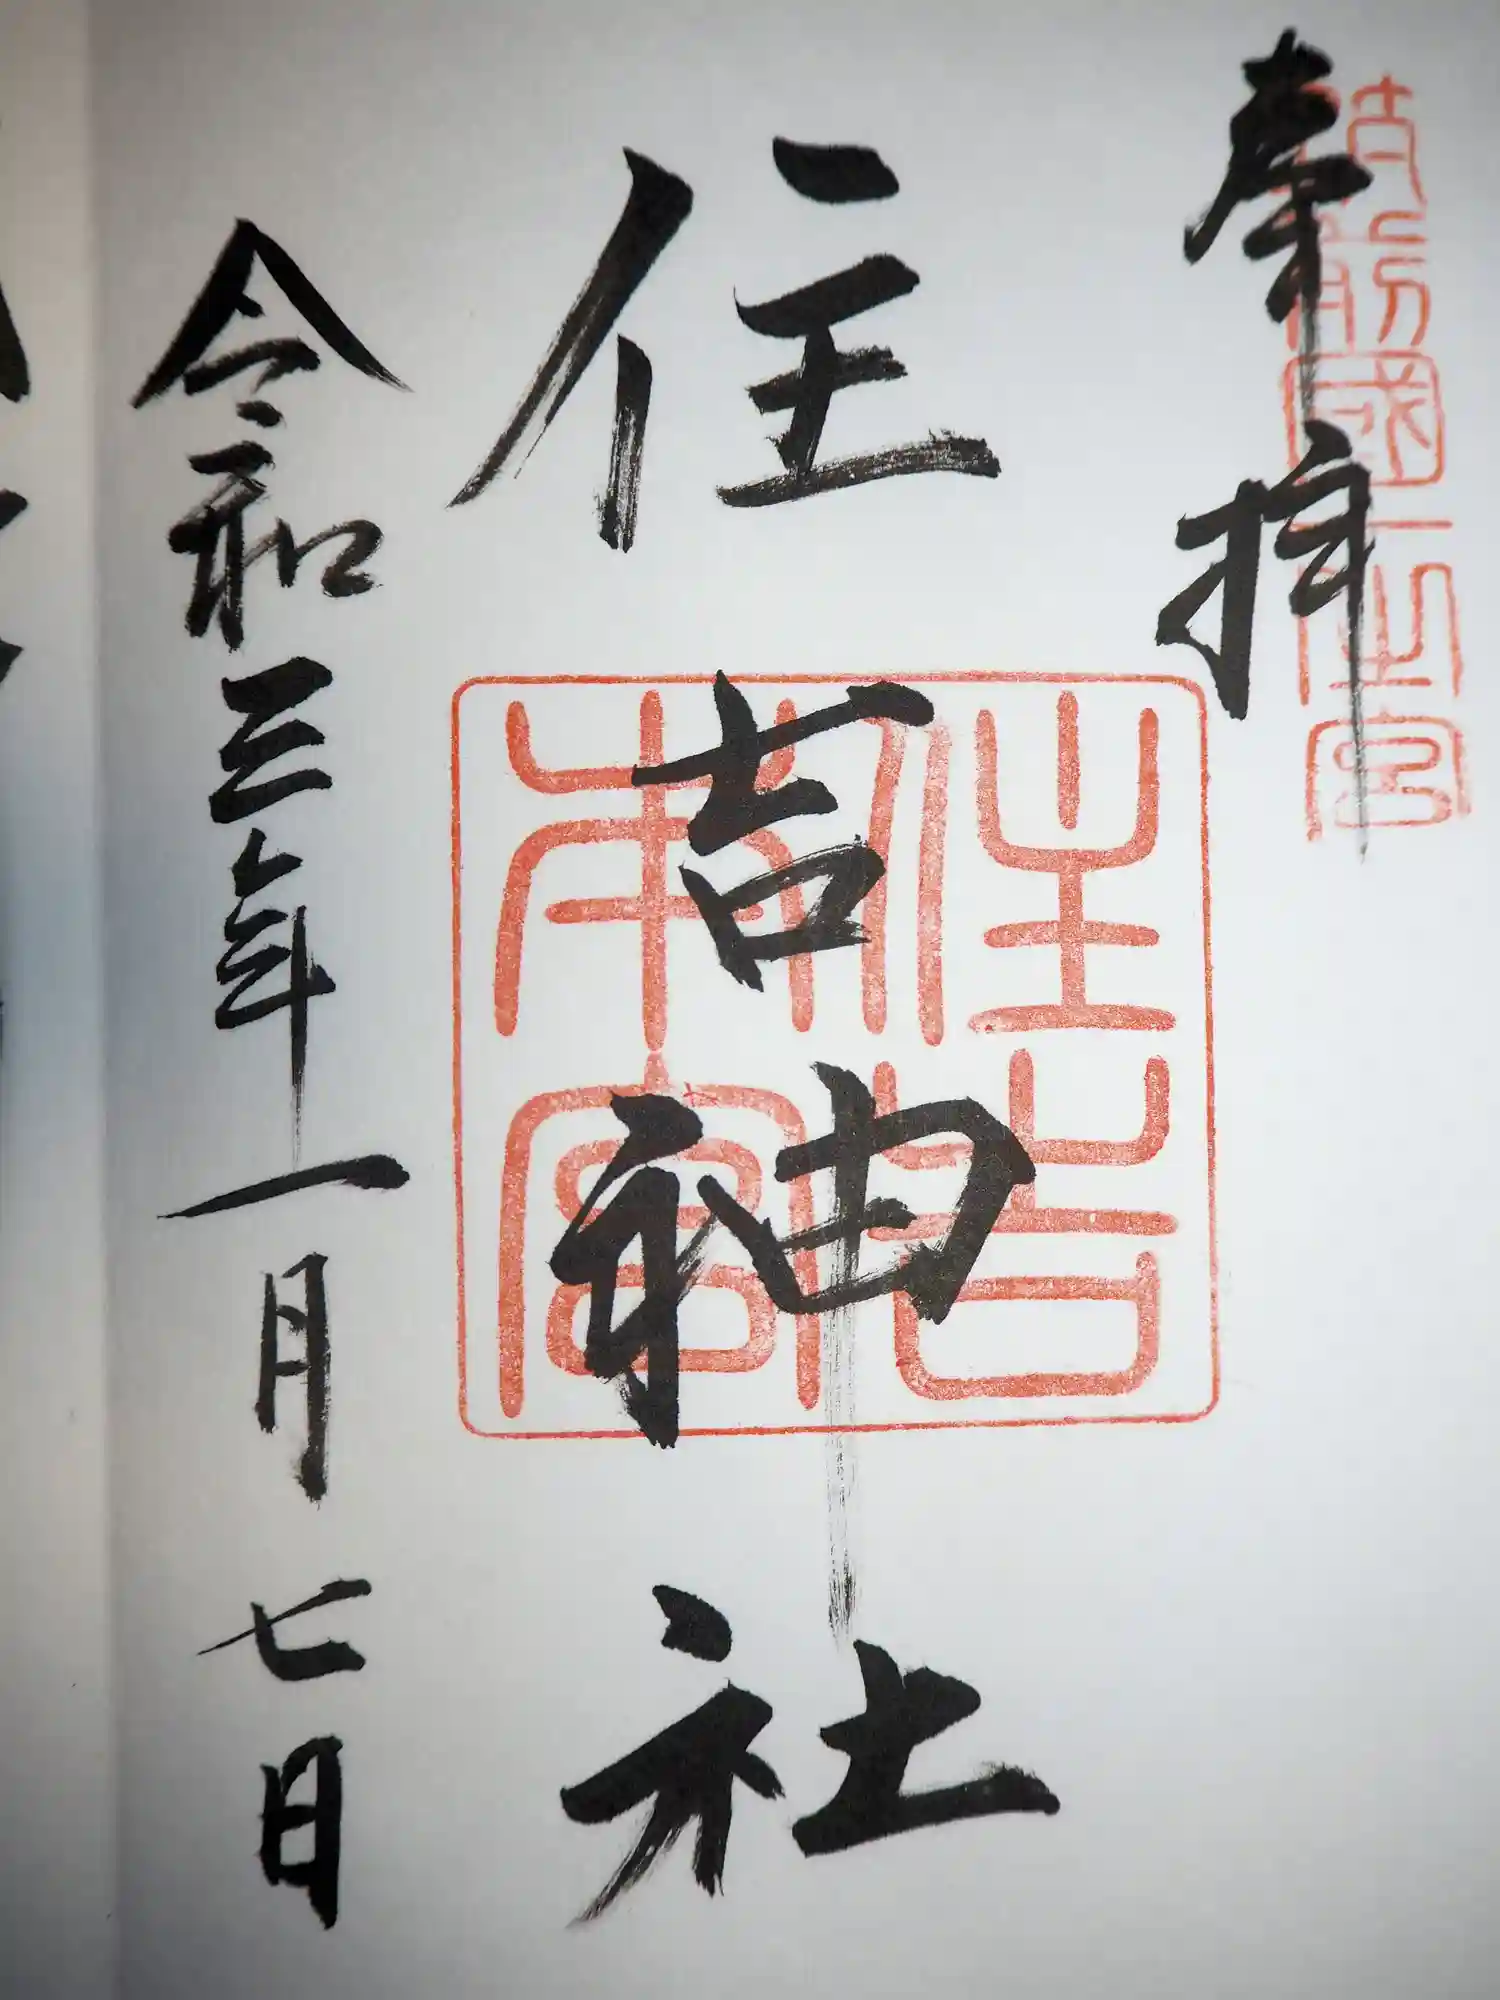 奉拝
筑前國一之宮
住吉神社
住吉本宮
令和三年一月七日